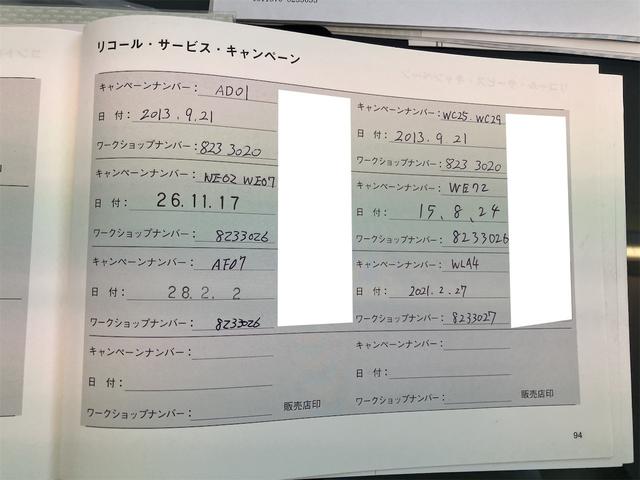 リコール・サービス・キャンペーン
キャンペーンナンバー： AD01
日 付： 2013.9.21
ワークショップナンバー： 823 3020
キャンペーンナンバー： NE02 WE07
日 付： 26.11.17
ワークショップナンバー： 8233026
キャンペーンナンバー： AF07
日 付： 28.2.2
ワークショップナンバー： 8233026
キャンペーンナンバー：
日 付：
ワークショップナンバー：
販売店印
キャンペーンナンバー： WC25. WC29
日 付： 2013.9 21
ワークショップナンバー： 823 3020
キャンペーンナンバー： WE72
日 付： 15.8.24
ワークショップナンバー： 8233026
キャンペーンナンバー： WLA4
日 付： 2021.2.27
ワークショップナンバー： 8233027
キャンペーンナンバー：
日 付：
ワークショップナンバー：
販売店印
94